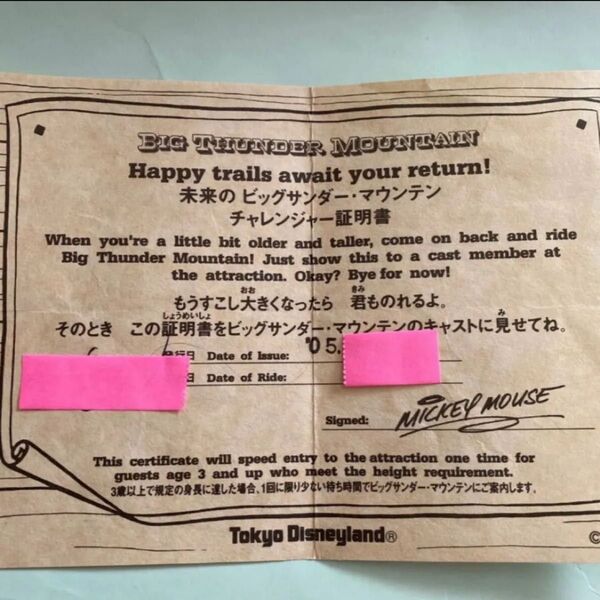 BIG THUNDER MOUNTAIN
Happy trails await your return!
未来の ビッグサンダー・マウンテン
チャレンジャー証明書
When you're a little bit older and taller, come on back and ride
Big Thunder Mountain! Just show this to a cast member at
the attraction. Okay? Bye for now!
おお きみ
もうすこし大きくなったら 君ものれるよ。
しょうめいしょ み
そのとき この証明書をビッグサンダー・マウンテンのキャストに見せてね。
行日 Date of Issue: '05.
日 Date of Ride:
Signed: MICKEY MOUSE
This certificate will speed entry to the attraction one time for
guests age 3 and up who meet the height requirement.
3歳以上で規定の身長に達した場合、1回に限り少ない待ち時間でビッグサンダー・マウンテンにご案内します。
Tokyo Disneyland®
©